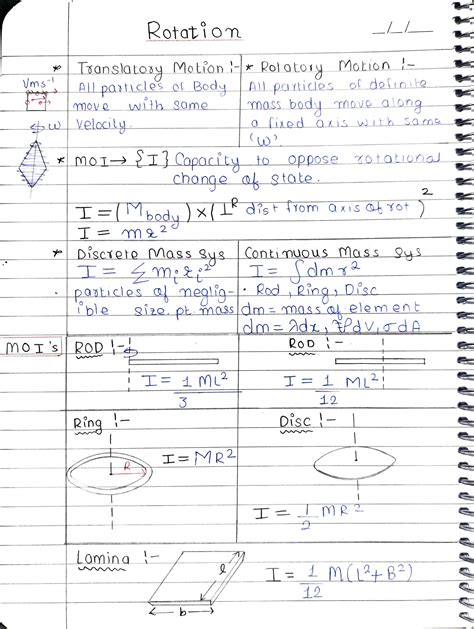 Rotation
* Translatory Motion :-
All particles of Body
move with same
velocity.
Vms⁻¹
* Rolatory Motion :-
All particles of definite
mass body move along
a fixed axis with same
'ω'.
ω
* MOI → {I} Capacity to oppose rotational
change of state.
I = (M body) × (⊥R dist from axis of rot)²
I = mr²
* Discrete Mass Sys
I = Σmᵢrᵢ²
particles of neglig-
ible size. pt. mass
Continuous Mass Sys
I = ∫dmr²
· Rod, Ring, Disc
dm = mass of element
dm = λdx, ρdV, σdA
MOI's
ROD :-
I = 1/3 ML²
ROD :-
I = 1/12 ML²
Ring :-
R
I = MR²
Disc :-
I = 1/2 MR²
Lamina :-
l
b
I = 1/12 M(L²+B²)